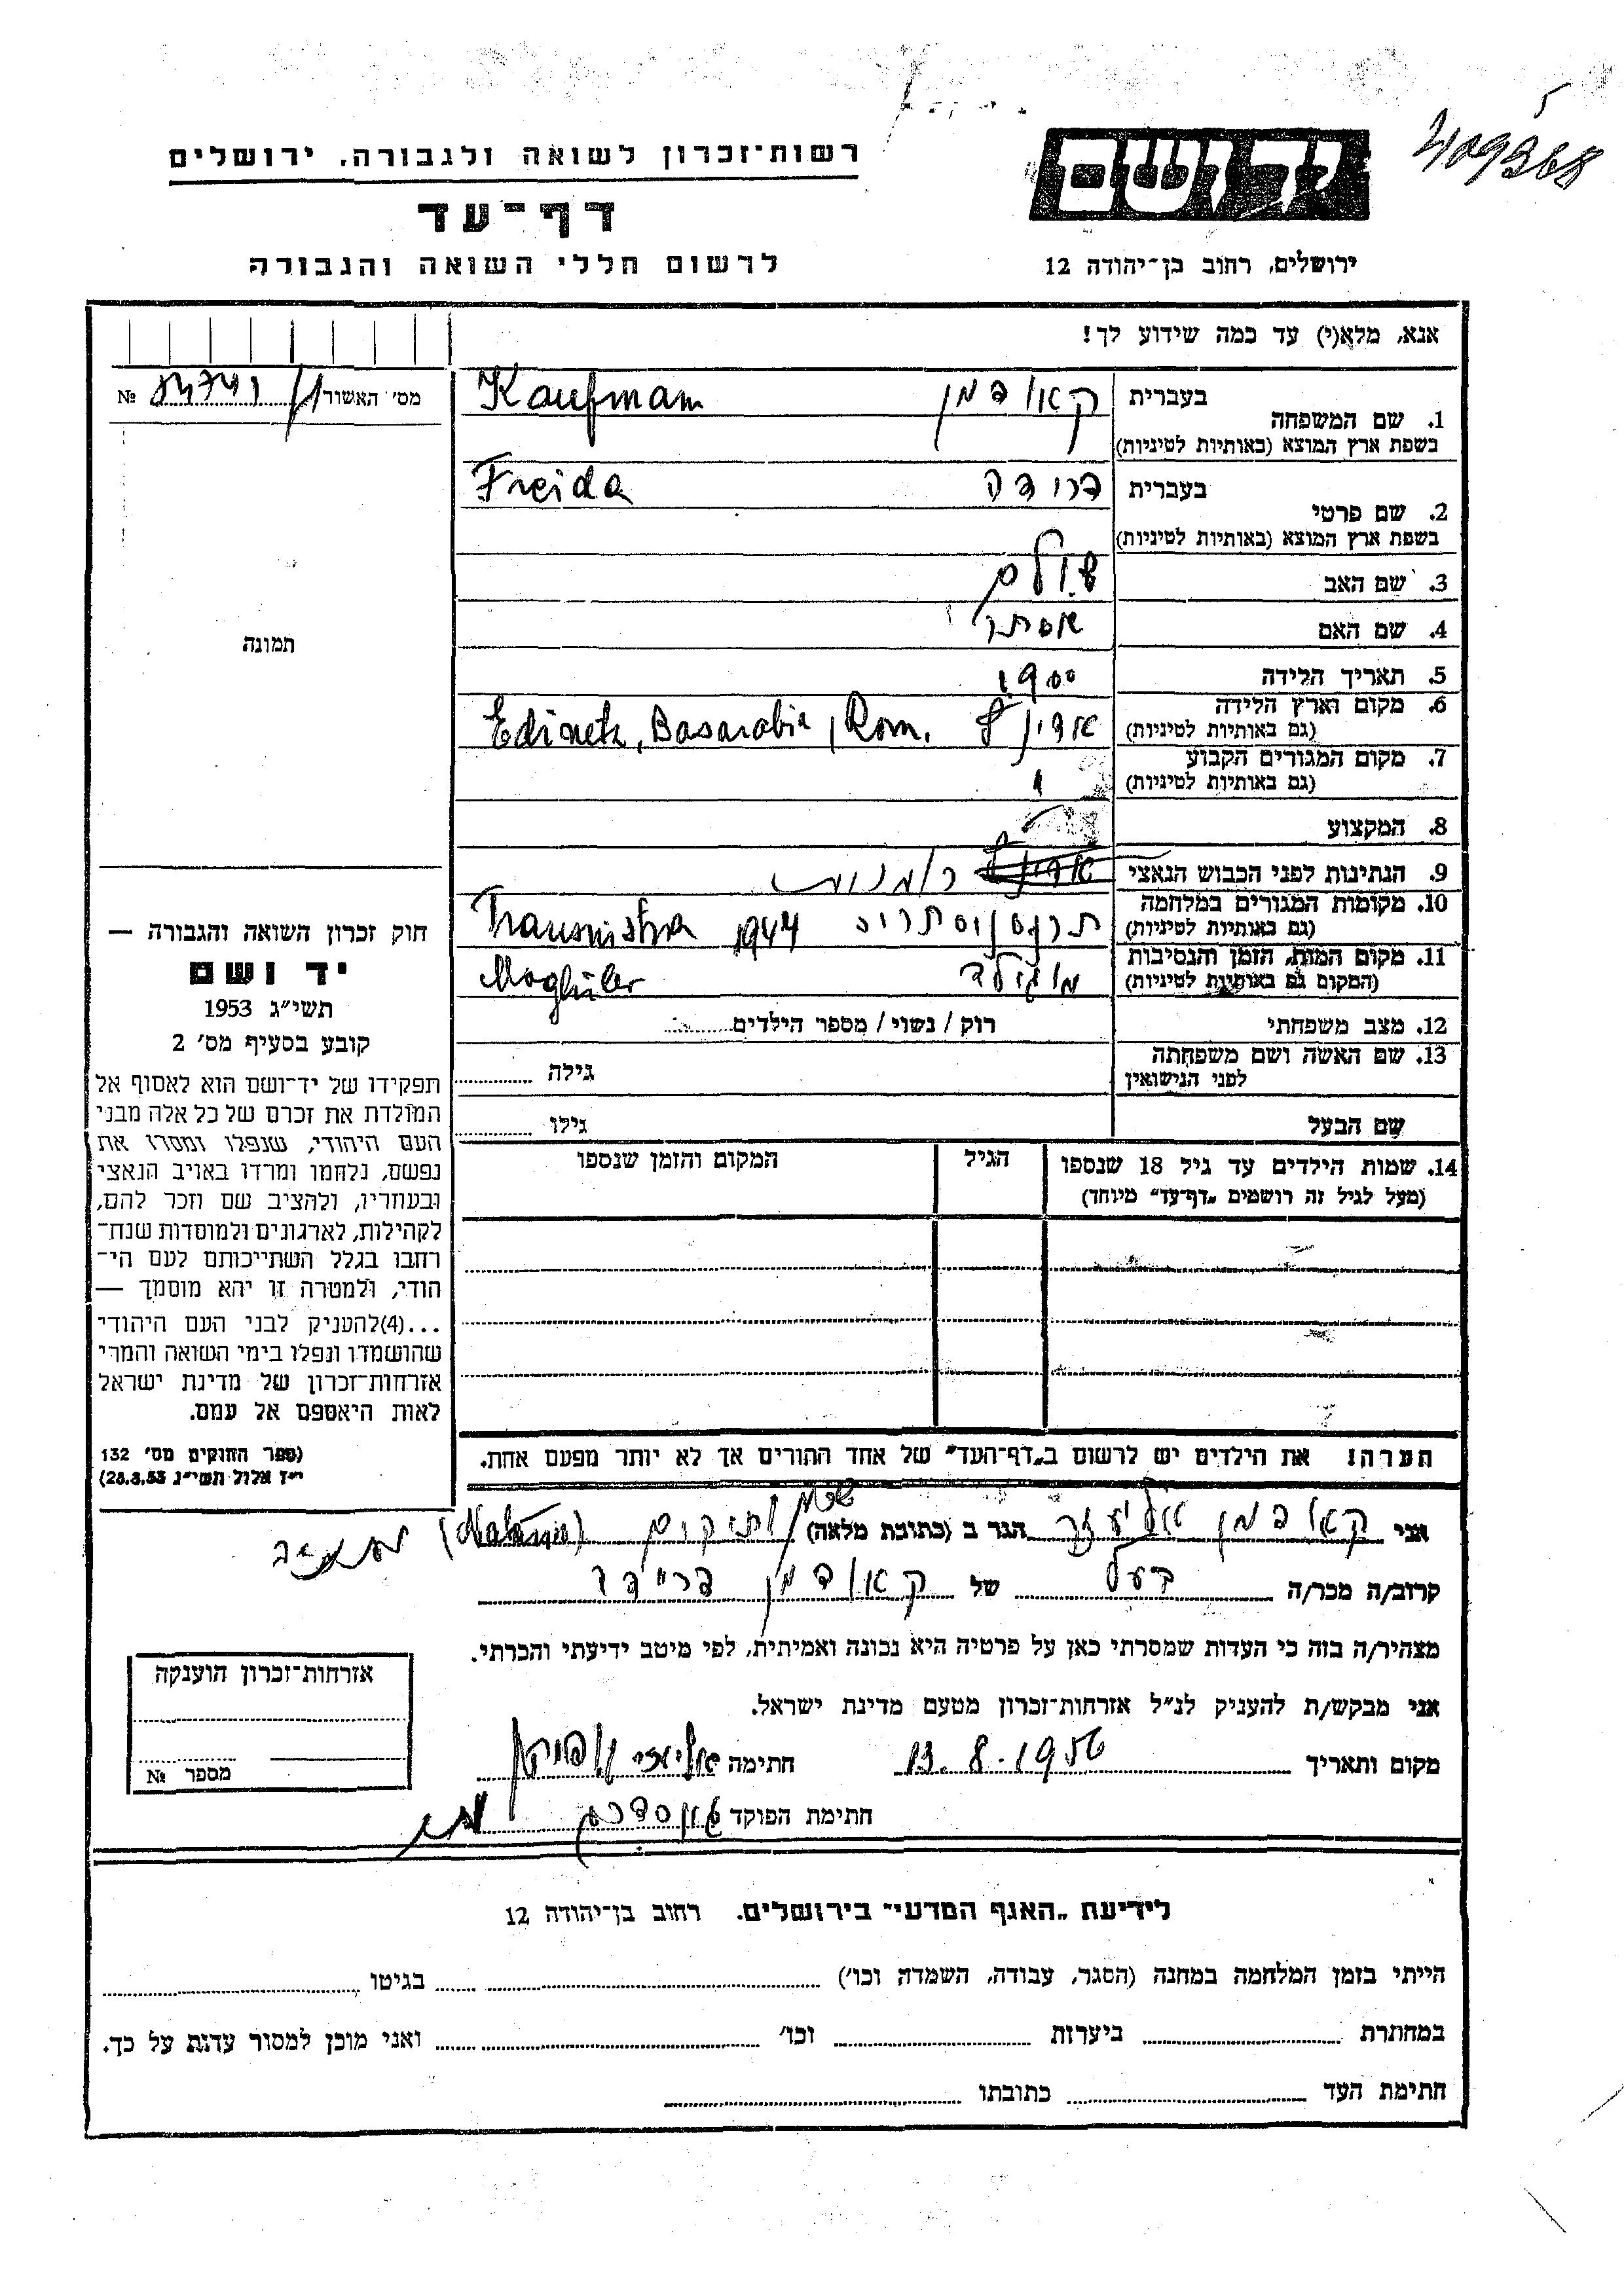 רשות־זכרון לשואה ולגבורה, ירושלים
דף־עד
לרשום חללי השואה והגבורה
יד ושם
ירושלים, רחוב בן־יהודה 12
אנא, מלא(י) עד כמה שידוע לך!
מס׳ האשור №
1. שם המשפחה בעברית קאופמן Kaufman
בשפת ארץ המוצא (באותיות לטיניות)
2. שם פרטי בעברית Freida
בשפת ארץ המוצא (באותיות לטיניות)
3. שם האב שולם
4. שם האם אסתר
5. תאריך הלידה 1900
6. מקום וארץ הלידה Edinetz, Basarabia, Rom.
(גם באותיות לטיניות)
7. מקום המגורים הקבוע
(גם באותיות לטיניות)
8. המקצוע
9. הנתינות לפני הכבוש הנאצי
10. מקומות המגורים במלחמה 1944
(גם באותיות לטיניות)
11. מקום המות, הזמן והנסיבות
(המקום גם באותיות לטיניות)
12. מצב משפחתי רוק / נשוי / מספר הילדים
13. שם האשה ושם משפחתה
לפני הנישואין גילה
שם הבעל גילו
14. שמות הילדים עד גיל 18 שנספו הגיל המקום והזמן שנספו
(מעל לגיל זה רושמים „דף־עד״ מיוחד)
הערה! את הילדים יש לרשום ב„דף־העד״ של אחד ההורים אך לא יותר מפעם אחת.
תמונה
חוק זכרון השואה והגבורה —
יד ושם
תשי״ג 1953
קובע בסעיף מס׳ 2
תפקידו של יד־ושם הוא לאסוף אל
המולדת את זכרם של כל אלה מבני
העם היהודי, שנפלו ומסרו את
נפשם, נלחמו ומרדו באויב הנאצי
ובעוזריו, ולהציב שם וזכר להם,
לקהילות, לארגונים ולמוסדות שנח־
רבו בגלל השתייכותם לעם הי־
הודי, ולמטרה זו יהא מוסמך —
...(4)להעניק לבני העם היהודי
שהושמדו ונפלו בימי השואה והמרי
אזרחות־זכרון של מדינת ישראל
לאות היאספם אל עמם.
(ספר החוקים מס׳ 132
י״ז אלול תשי״ג 28.8.53)
אני קאופמן אליעזר הגר ב (כתובת מלאה) שכון ותיקים (Natania) נתניה
קרוב/ה מכר/ה בעל של קאופמן
מצהיר/ה בזה כי העדות שמסרתי כאן על פרטיה היא נכונה ואמיתית, לפי מיטב ידיעתי והכרתי.
אני מבקש/ת להעניק לנ״ל אזרחות־זכרון מטעם מדינת ישראל.
מקום ותאריך 13.8.1956 חתימה
חתימת הפוקד
אזרחות־זכרון הוענקה
מספר №
לידיעת „האגף המדעי״ בירושלים. רחוב בן־יהודה 12
הייתי בזמן המלחמה במחנה (הסגר, עבודה, השמדה וכו׳) בגיטו
במחתרת ביערות וכו׳ ואני מוכן למסור עדות על כך.
חתימת העד כתובתו